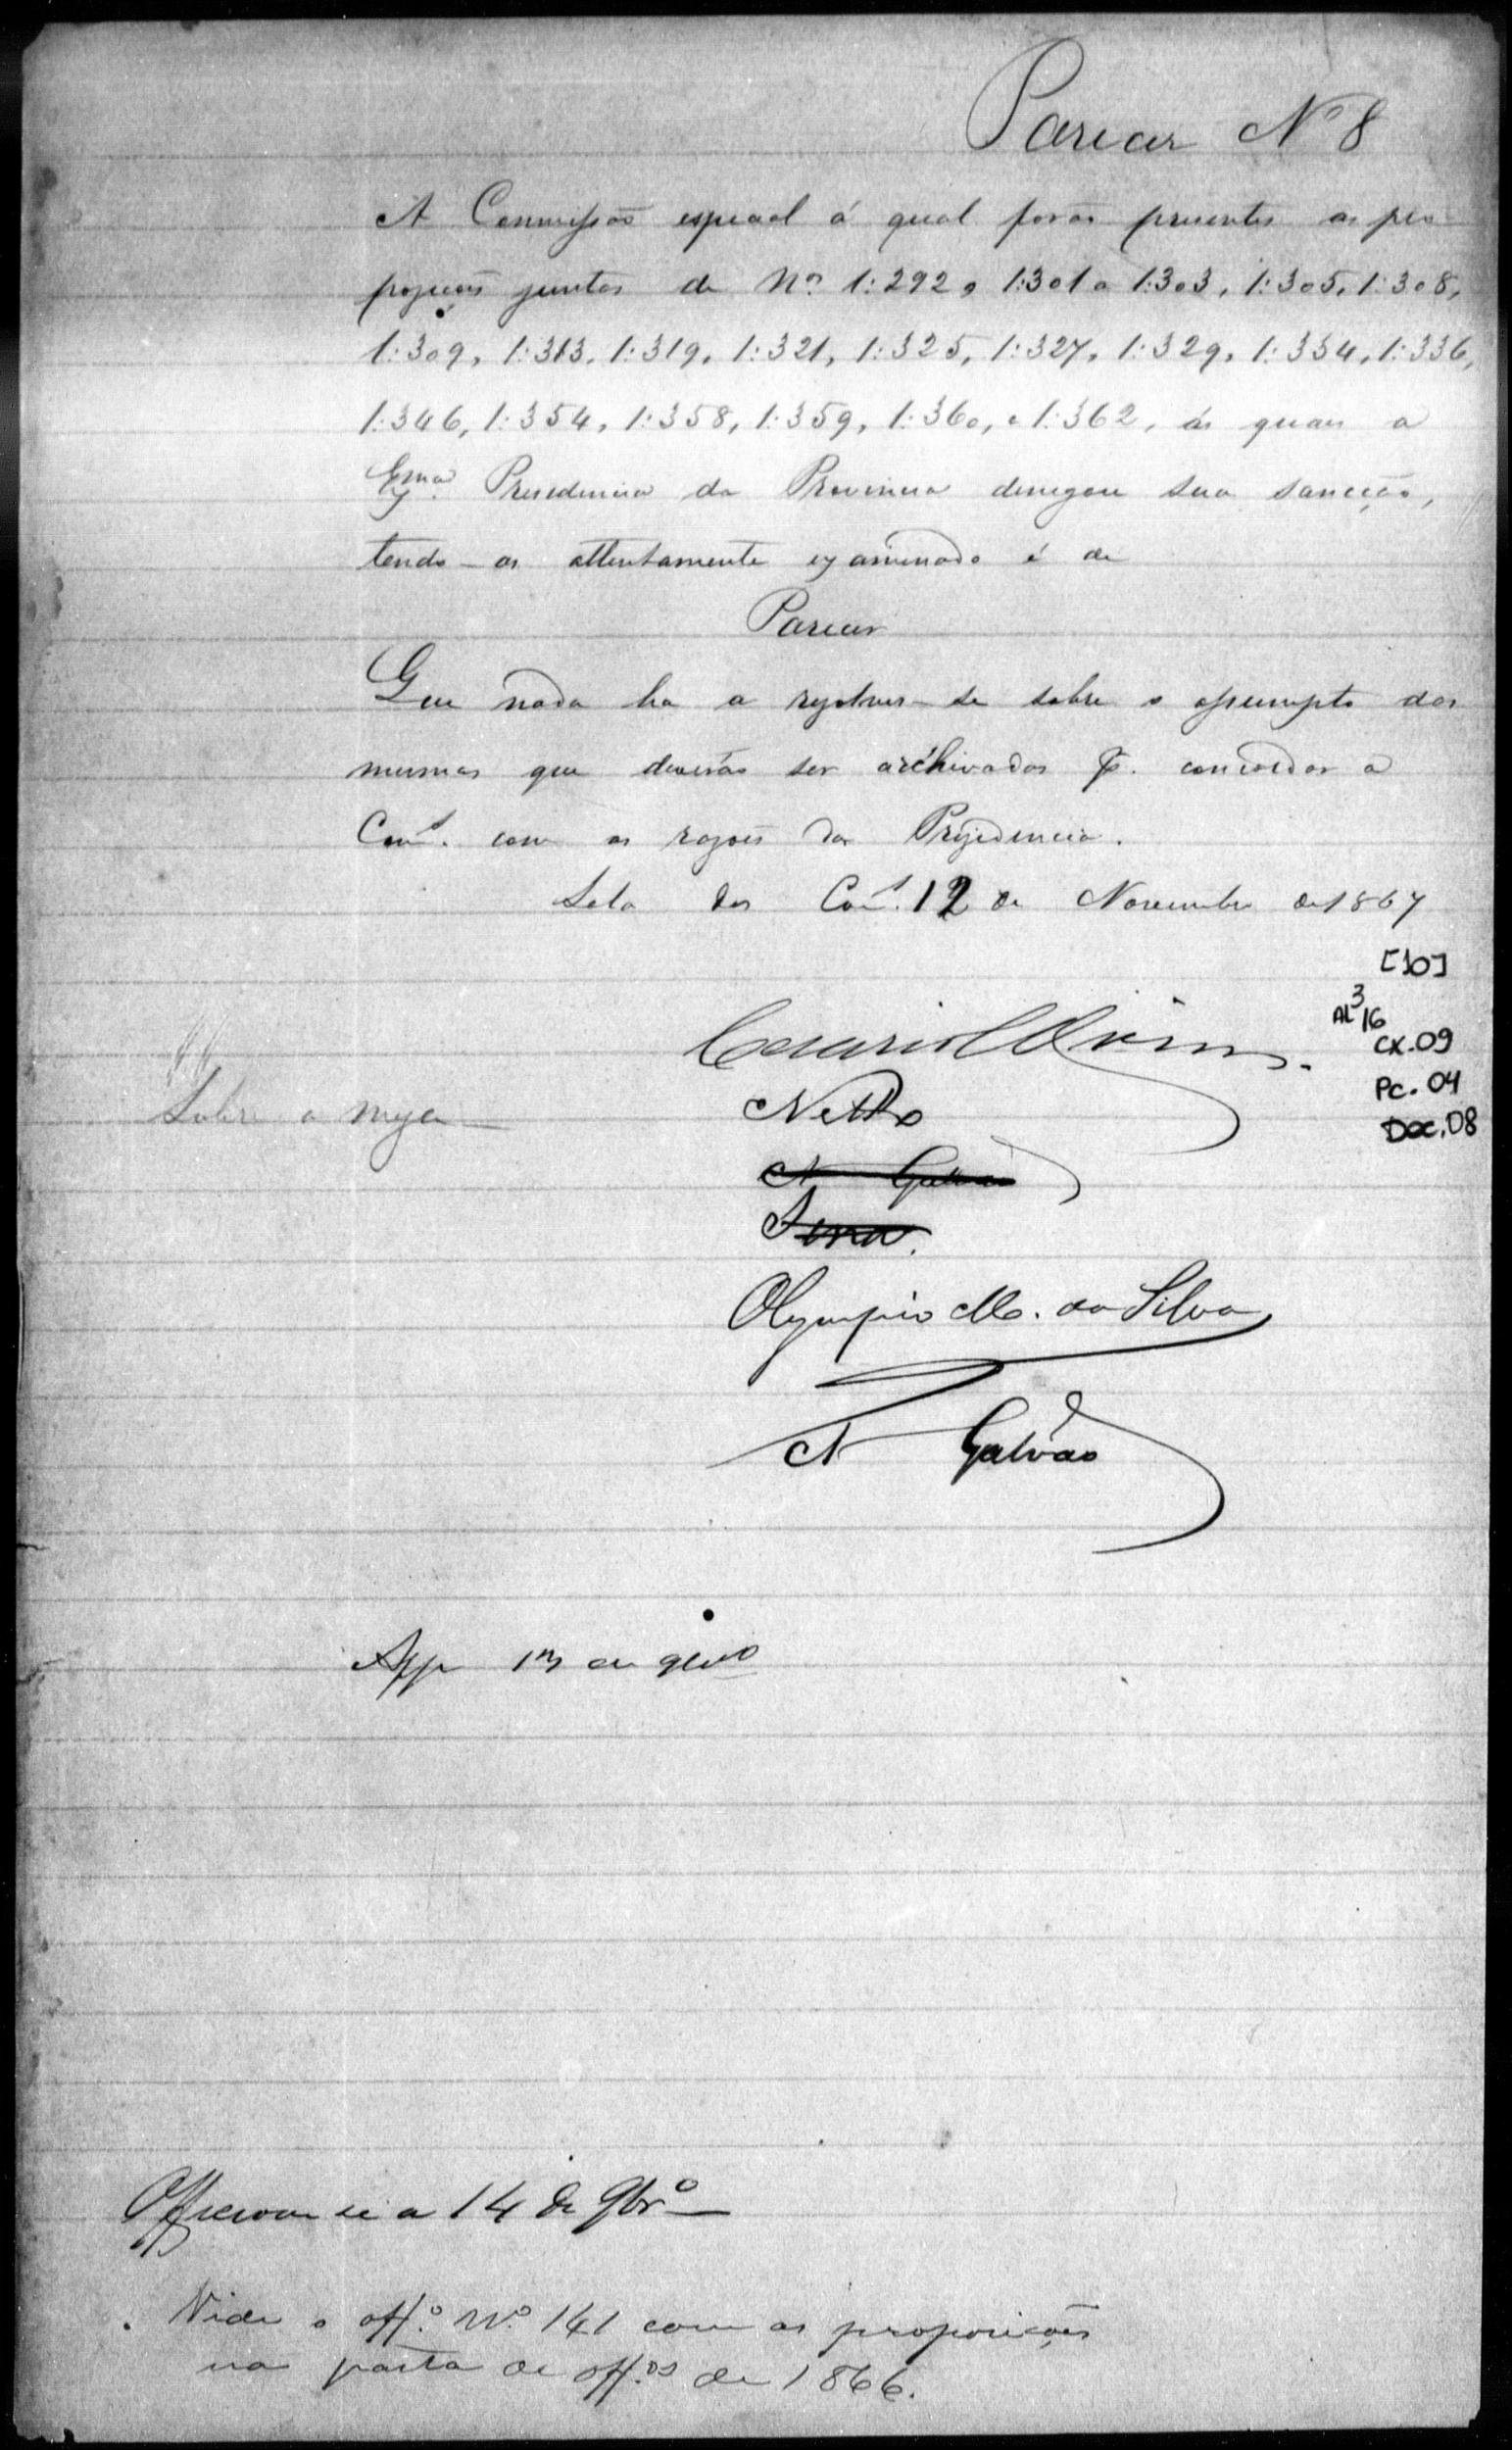 Parecer Nº 8
A Commissão especial á qual forão presentes as pro
posições juntas de Nos. 1:292, 1:301 a 1:303, 1:305, 1:308,
1:309, 1:313, 1:319, 1:321, 1:325, 1:327, 1:329, 1:334, 1:336,
1:346, 1:354, 1:358, 1:359, 1:360, e 1:362, ás quaes a
Exma. Presidencia da Provincia denegou sua sancção,
tendo-as attentamente examinado é de
Parecer
Que nada ha a resolver-se sobre o assumpto das
mesmas que deverão ser archivadas p. concordar a
Com. com as rasões da Presidencia.
Sala das Com. 12 de Novembro de 1867
[10]
AL 3/16
CX.09
Pc. 04
Doc.08
Sobre a mesa
Netto
N Galvão
Olympio M. da Silva
N Galvão
App 13 de 9bro
Officiou se a 14 de 9bro
Vide o offo. No. 141 com as proposições
na pasta de offos de 1866.